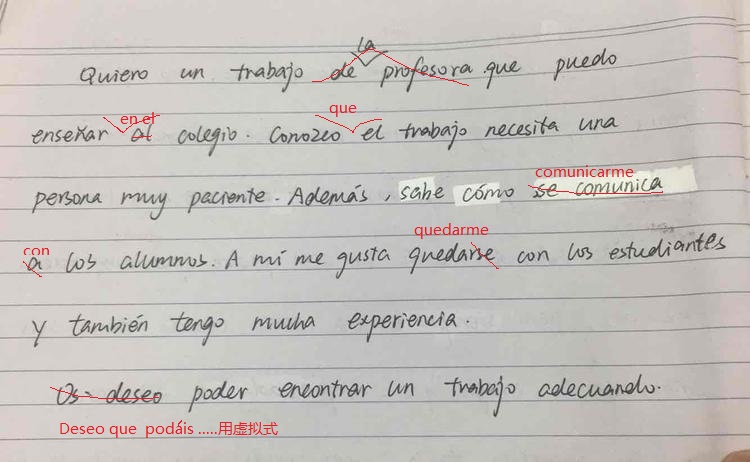 la
Quiero un trabajo de profesora que puedo
en el que
enseñar al colegio. Conozco el trabajo necesita una
comunicarme
persona muy paciente. Además, sabe cómo se comunica
con quedarme
a los alumnos. A mí me gusta quedarse con los estudiantes
y también tengo mucha experiencia.
Os deseo poder encontrar un trabajo adecuando.
Deseo que podáis .....用虚拟式